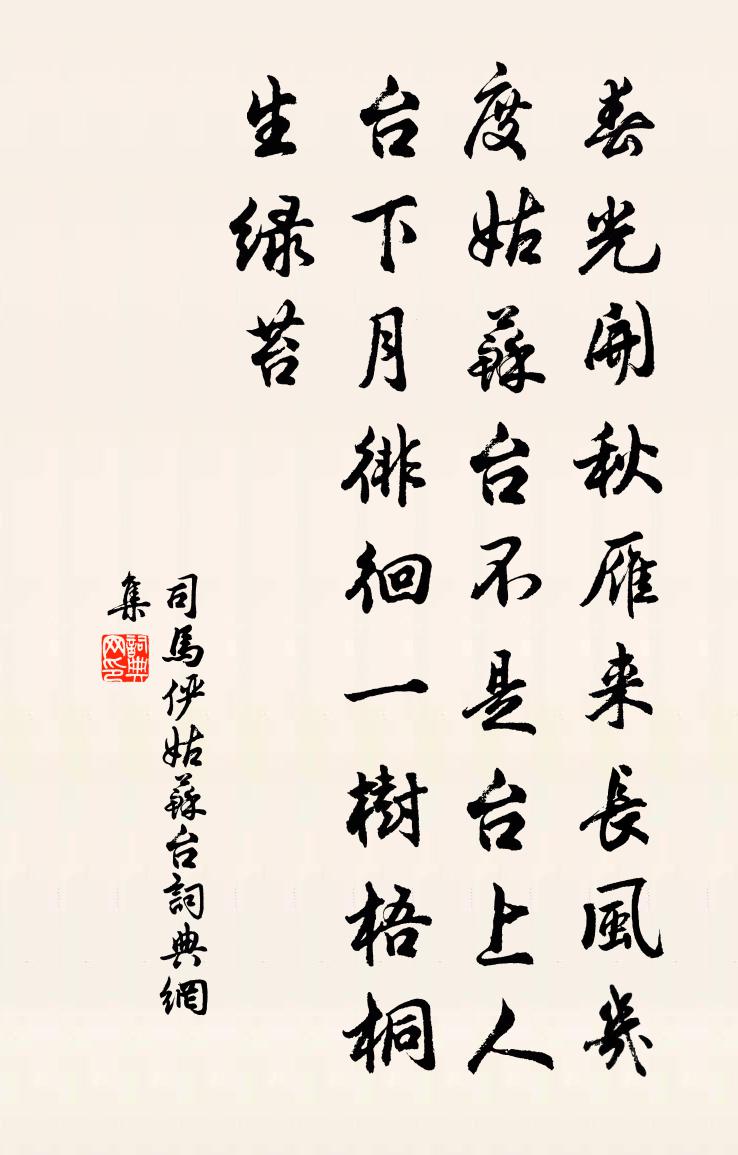 春光開秋雁来長風幾
度姑蘇台不是台上人
台下月徘徊一樹梧桐
生绿苔
司馬伊姑蘇台詞典網
集
詞典网印